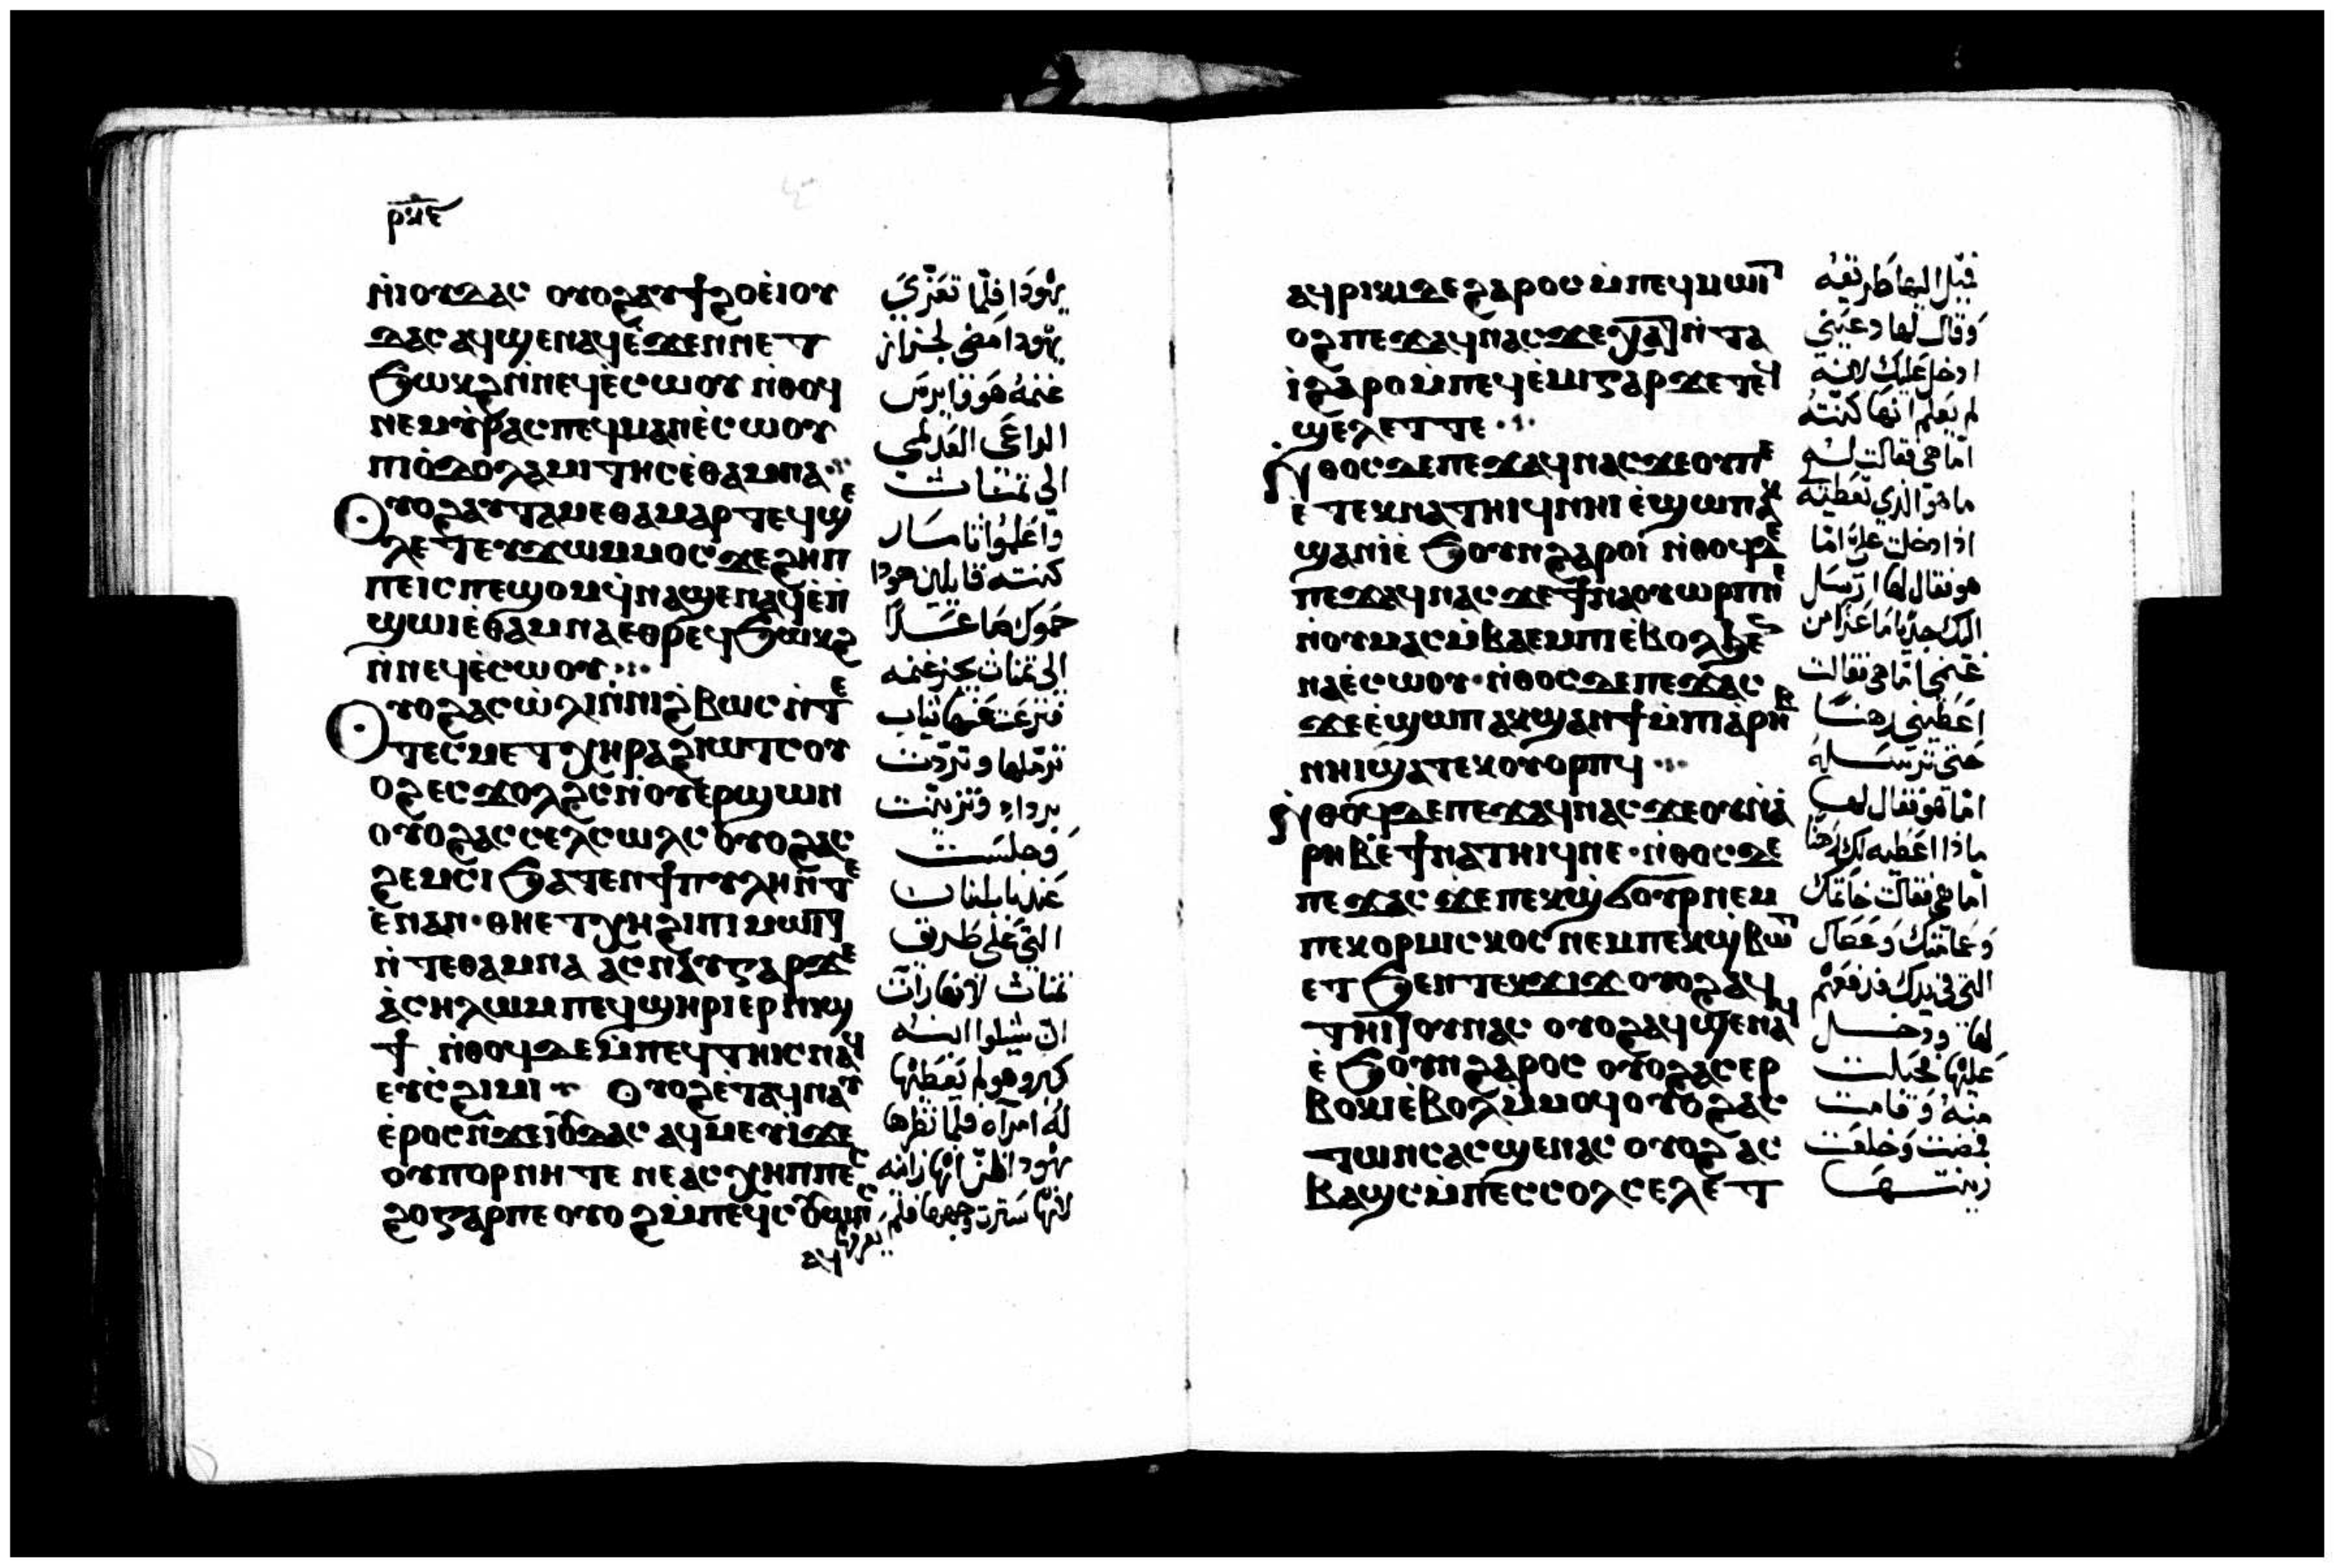 ⲣⲝ̅ⲉ̅
ⲛ̀ⲓⲟⲩⲇⲁⲥ ⲟⲩⲟϩⲁⲩϯϩⲟⲉ̀ⲓⲟⲩ
ⲇⲁⲥ ⲁϥϣⲉⲛⲁϥⲉ̀ϫⲉⲛⲛⲉⲧ
ϧⲱⲕϩⲛ̀ⲛⲉϥⲉ̀ⲥⲱⲟⲩ ⲛ̀ⲑⲟϥ
ⲛⲉⲙⲩ̀ⲣⲁⲥⲡⲉϥⲙⲁⲛⲉ̀ⲥⲱⲟⲩ
ⲡⲓⲟ̀ⲇⲟⲗⲁⲙⲓⲧⲏⲥⲉ̀ⲑⲁⲙⲛⲁ
ⲟⲩⲟϩⲁⲩⲧⲁⲙⲉⲑⲁⲙⲁⲣⲧⲉϥϣⲉ
ⲗⲉⲧⲉⲩϫⲱⲙⲙⲟⲥϫⲉϩⲏⲡ
ⲡⲉⲓⲥⲡⲉϣⲟⲙϥ̀ⲛⲁϣⲉⲛⲁϥⲉ̀ⲛ̀
ϣϣⲓⲉ̀ⲑⲁⲙⲛⲁⲉⲑⲣⲉϥϧⲱⲕϩ
ⲛ̀ⲛⲉϥⲉ̀ⲥⲱⲟⲩ
ⲟⲩⲟϩⲁⲥⲱ̀ⲗⲓⲛ̀ⲛⲓϩⲃⲱⲥ ⲛ̀ⲧⲉ
ⲧⲉⲥⲙⲉⲧⲭⲏⲣⲁϩⲓⲱⲧⲥⲟⲩ
ⲟϩⲉⲥϫⲟⲗϩⲥⲛ̀ⲟⲩⲉⲣϣⲱⲛ
ⲟⲩⲟϩⲁⲥⲥⲉⲗⲥⲱⲗⲥ ⲟⲩⲟϩⲁⲥ
ϩⲉⲙⲥⲓ ϧⲁⲧⲉⲛϯⲡⲩⲗⲏⲛ̀ⲧⲉ
ⲉ̀ⲛⲁⲛ·ⲑⲏⲉⲧⲭⲏϩⲓⲡⲓⲙⲱⲓⲧ
ⲛ̀ⲧⲉⲑⲁⲙⲛⲁ ⲁⲥⲛⲁⲩⲅⲁⲣϫⲉ
ⲁ̀ⲥⲏⲗⲱⲙⲡⲉϥϣⲏⲣⲓⲉⲣⲛⲓϣ
ϯ ⲛ̀ⲑⲟϥⲇⲉⲙ̀ⲡⲉϥⲧⲏⲓⲥⲛⲁϥ
ⲉⲩⲥ̀ϩⲓⲙⲓ ⲟⲩⲟϩⲉ̀ⲧⲁϥⲛⲁⲩ
ⲉ̀ⲣⲟⲥⲛ̀ϫⲉⲓⲟⲩⲇⲁⲥ ⲁϥⲙⲉⲩⲓϫⲉ
ⲟⲩⲡⲟⲣⲛⲏⲧⲉ ⲛⲉⲁⲥϩⲏⲡⲡⲉⲥ
ϩⲟⲅⲁⲣⲡⲉ ⲟⲩⲟϩⲙ̀ⲡⲉϥⲥⲟⲩⲱⲛⲥ
ⲁϥ
يهودا فلما تعزي
يهودا مضى لجزاز
غنمه هو وفايرس
الراعي العدلمي
الي تمناث
واعلموا تامار
كنته قايلين هودا
حموك صاعدًا
الي تمناث يجز غنمه
فنزعت عنها ثياب
ترملها وتردت
برداء وتزينت
وجلست
عند باب اينان
التي علي طريق
تمناث لانها رأت
ان شيلوا ابنه
كبر وهو لم يعطيها
له امرأه فلما نظرها
يهودا ظن انها زانيه
لانها سترت وجهها فلم
يعرفها
ⲁϥⲣⲓⲕⲓⲇⲉϩⲁⲣⲟⲥ ⲙ̀ⲡⲉϥⲙⲱⲓⲧ
ⲟϩⲡⲉϫⲁϥⲛⲁⲥϫⲉⲭⲁⲧⲛ̀ⲧⲁ
ⲓ̀ϩⲁⲣⲟⲙ̀ⲡⲉϥⲉ̀ⲙⲓⲅⲁⲣϫⲉⲧⲉϥ
ϣⲉⲗⲉⲧⲧⲉ
ⲛ̀ⲑⲟⲥⲇⲉⲡⲉϫⲁⲥⲛⲁϥϫⲉⲟⲩⲡⲉ
ⲉ̀ⲧⲉⲕⲛⲁⲧⲏⲓϥⲛⲏⲓ ⲉ̀ϣⲱⲡⲁⲕ
ϣⲁⲛⲓ̀ⲉ̀ ϧⲟⲩⲛϩⲁⲣⲟⲓ ⲛ̀ⲑⲟϥⲇⲉ
ⲡⲉϫⲁϥⲛⲁⲥϫⲉϯⲛⲁⲟⲩⲱⲣⲡⲛⲉ
ⲛ̀ⲟⲩⲙⲁⲥⲙ̀ⲃⲁⲉⲙⲡⲓⲉ̀ⲃⲟⲗϧⲉⲛ
ⲛⲁⲉ̀ⲥⲱⲟⲩ·ⲛ̀ⲑⲟⲥⲇⲉⲡⲉϫⲁⲥ
ϫⲉⲉ̀ϣⲱⲡⲁⲕϣⲁⲛϯⲙ̀ⲡⲓⲁⲣⲏⲃ
ⲛⲏⲓϣⲁⲧⲉⲕⲟⲩⲟⲣⲡϥ
ⲛ̀ⲑⲟϥⲇⲉⲡⲉϫⲁϥⲛⲁⲥϫⲉⲟⲩⲛ̀ⲁ
ⲣⲏⲃⲉϯⲛⲁⲧⲏⲓϥⲛⲉ·ⲛ̀ⲑⲟⲥⲇⲉ
ⲡⲉϫⲁⲥ ϫⲉⲡⲉⲕϣ̀ϭⲟⲩⲣⲛⲉⲙ
ⲡⲉⲕⲟⲣⲙⲓⲥⲕⲟⲥ ⲛⲉⲙⲡⲉⲕϣ̀ⲃⲱⲧ
ⲉⲧϧⲉⲛⲧⲉⲕϫⲓϫ ⲟⲩⲟϩⲁϥ
ⲧⲏⲓⲧⲟⲩⲛⲁⲥ ⲟⲩⲟϩⲁϥϣⲉⲛⲁϥ
ⲉ̀ϧⲟⲩⲛϩⲁⲣⲟⲥ ⲟⲩⲟϩⲁⲥⲉⲣ
ⲃⲟⲕⲓⲉ̀ⲃⲟⲗⲙ̀ⲙⲟϥⲟⲩⲟϩⲁⲥ
ⲧⲱⲛⲥⲁⲥϣⲉⲛⲁⲥ ⲟⲩⲟϩⲁⲥ
ⲃⲁϣⲥⲙ̀ⲡⲉⲥⲥⲟⲗⲥⲉⲗⲉⲧ
فميل اليها طريقه
وقال لها دعيني
ادخل عليك لانه
لم يعلم انها كنته
اما هي فقالت له
ما هو الذي تعطيه
اذا دخلت علي اما
هو فقال لها ارسل
اليك جديا ماعزا من
غنمي اما هي فقالت
اعطيني رهنا
حتي ترسله
اما هو فقال لها
ماذا اعطيه لك رهنا
اما هي فقالت خاتمك
وعمامتك وعصاك
التي في يدك فدفعهم
لها ودخل
عليها فحبلت
منه وقامت
فمضت وخلعت
زينتها